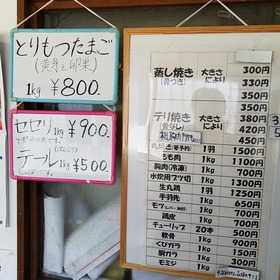 とりもつたまご
(黄身と卵巣)
1kg ¥800.
セセリ 1kg ¥900.
テール 1kg ¥500.
蒸し焼き 大きさにより 300円
(骨つき) 330円
350円
テリ焼き 大きさにより 350円
(骨なし) 380円
420円
450円
丸焼き(要予約) 1羽 1500円
もも肉 1kg 1100円
胸肉(冷凍) 1kg 700円
水炊用ブツ切 1kg 1300円
生丸鶏 1羽 1300円
手羽先 1kg 1000円
モツ 1kg 900円
鶏皮 1kg 700円
チューリップ 20本 500円
軟骨 1kg 500円
くびガラ 1kg 900円
胴ガラ 1kg 150円
モミジ 1kg 300円